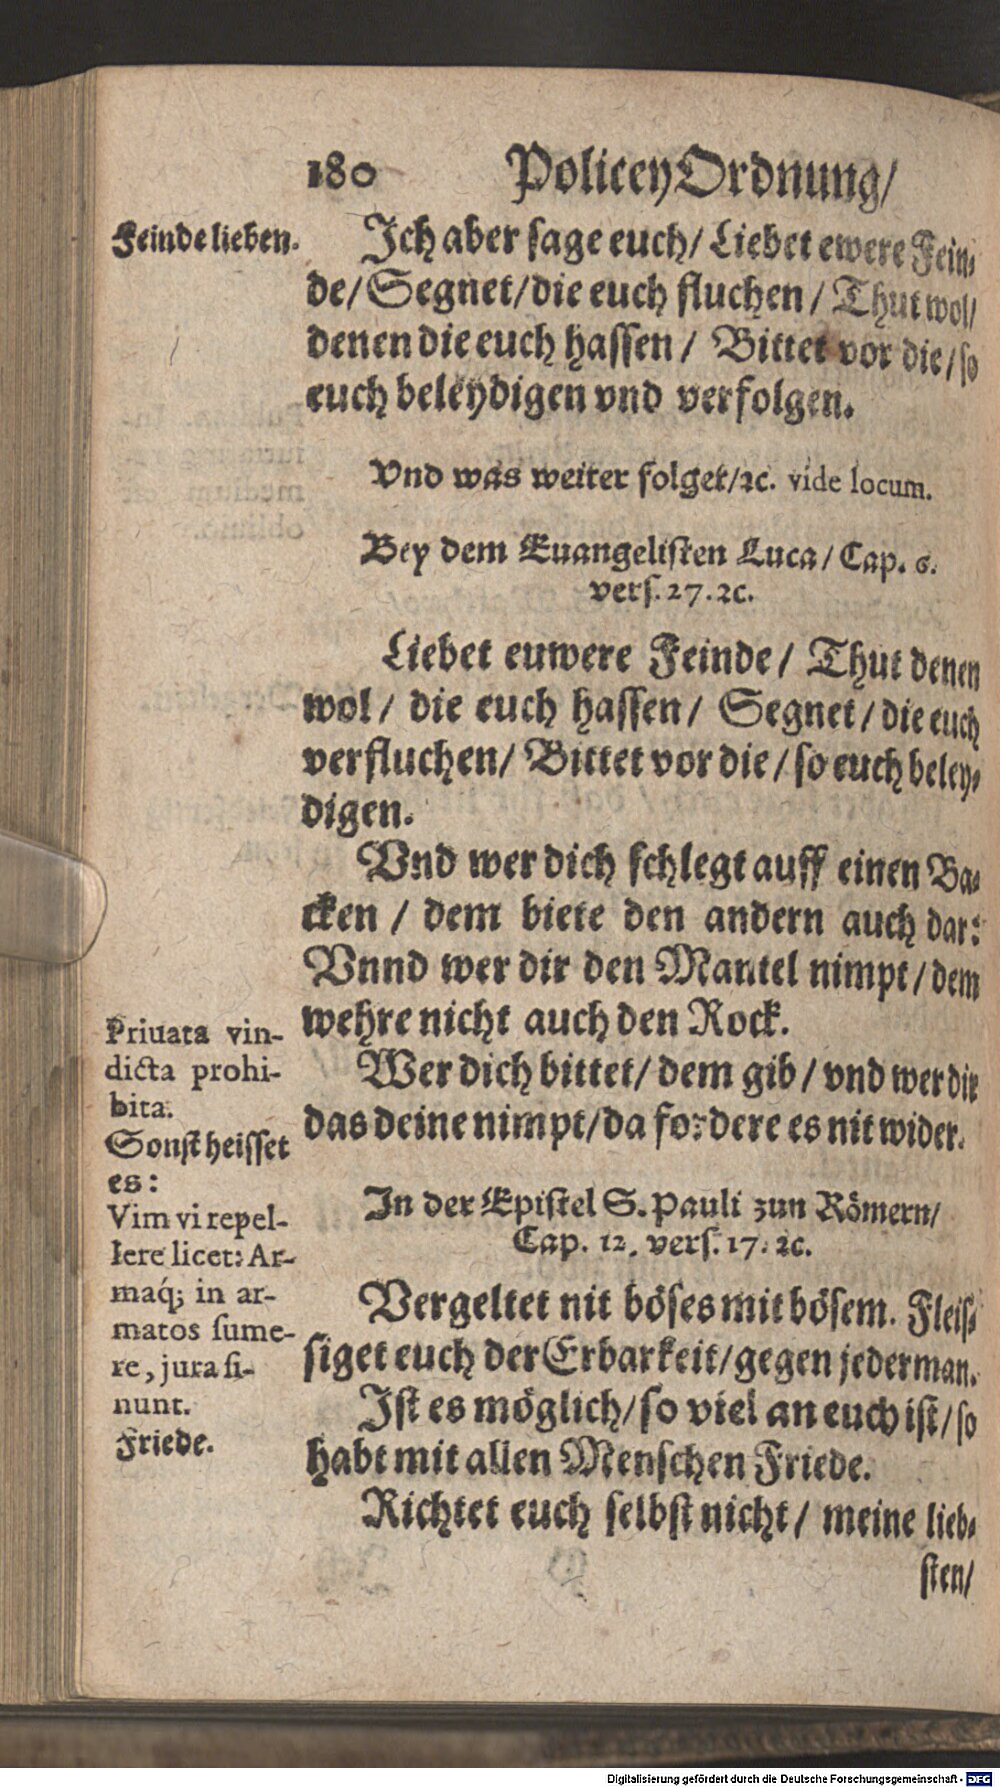 180 Policey Ordnung/
Feinde lieben.
Ich aber sage euch/ Liebet ewere Fein-
de/ Segnet/ die euch fluchen/ Thut wol/
denen die euch hassen/ Bittet vor die/ so
euch beleydigen vnd verfolgen.
Vnd was weiter folget/ ꝛc. vide locum.
Bey dem Euangelisten Luca/ Cap. 6.
vers. 27. ꝛc.
Liebet euwere Feinde/ Thut denen
wol/ die euch hassen/ Segnet/ die euch
verfluchen/ Bittet vor die/ so euch beley-
digen.
Vnd wer dich schlegt auff einen Ba-
cken/ dem biete den andern auch dar:
Vnnd wer dir den Mantel nimpt/ dem
wehre nicht auch den Rock.
Wer dich bittet/ dem gib/ vnd wer dir
das deine nimpt/ da fordere es nit wider.
Priuata vin-
dicta prohi-
bita.
Sonst heisset
es:
Vim vi repel-
lere licet: Ar-
maq́; in ar-
matos sume-
re, jura si-
nunt.
Friede.
In der Epistel S. Pauli zun Römern/
Cap. 12. vers. 17. ꝛc.
Vergeltet nit böses mit bösem. Fleis-
siget euch der Erbarkeit/ gegen jederman.
Ist es möglich/ so viel an euch ist/ so
habt mit allen Menschen Friede.
Richtet euch selbst nicht/ meine lieb-
sten/
Digitalisierung gefördert durch die Deutsche Forschungsgemeinschaft - DFG